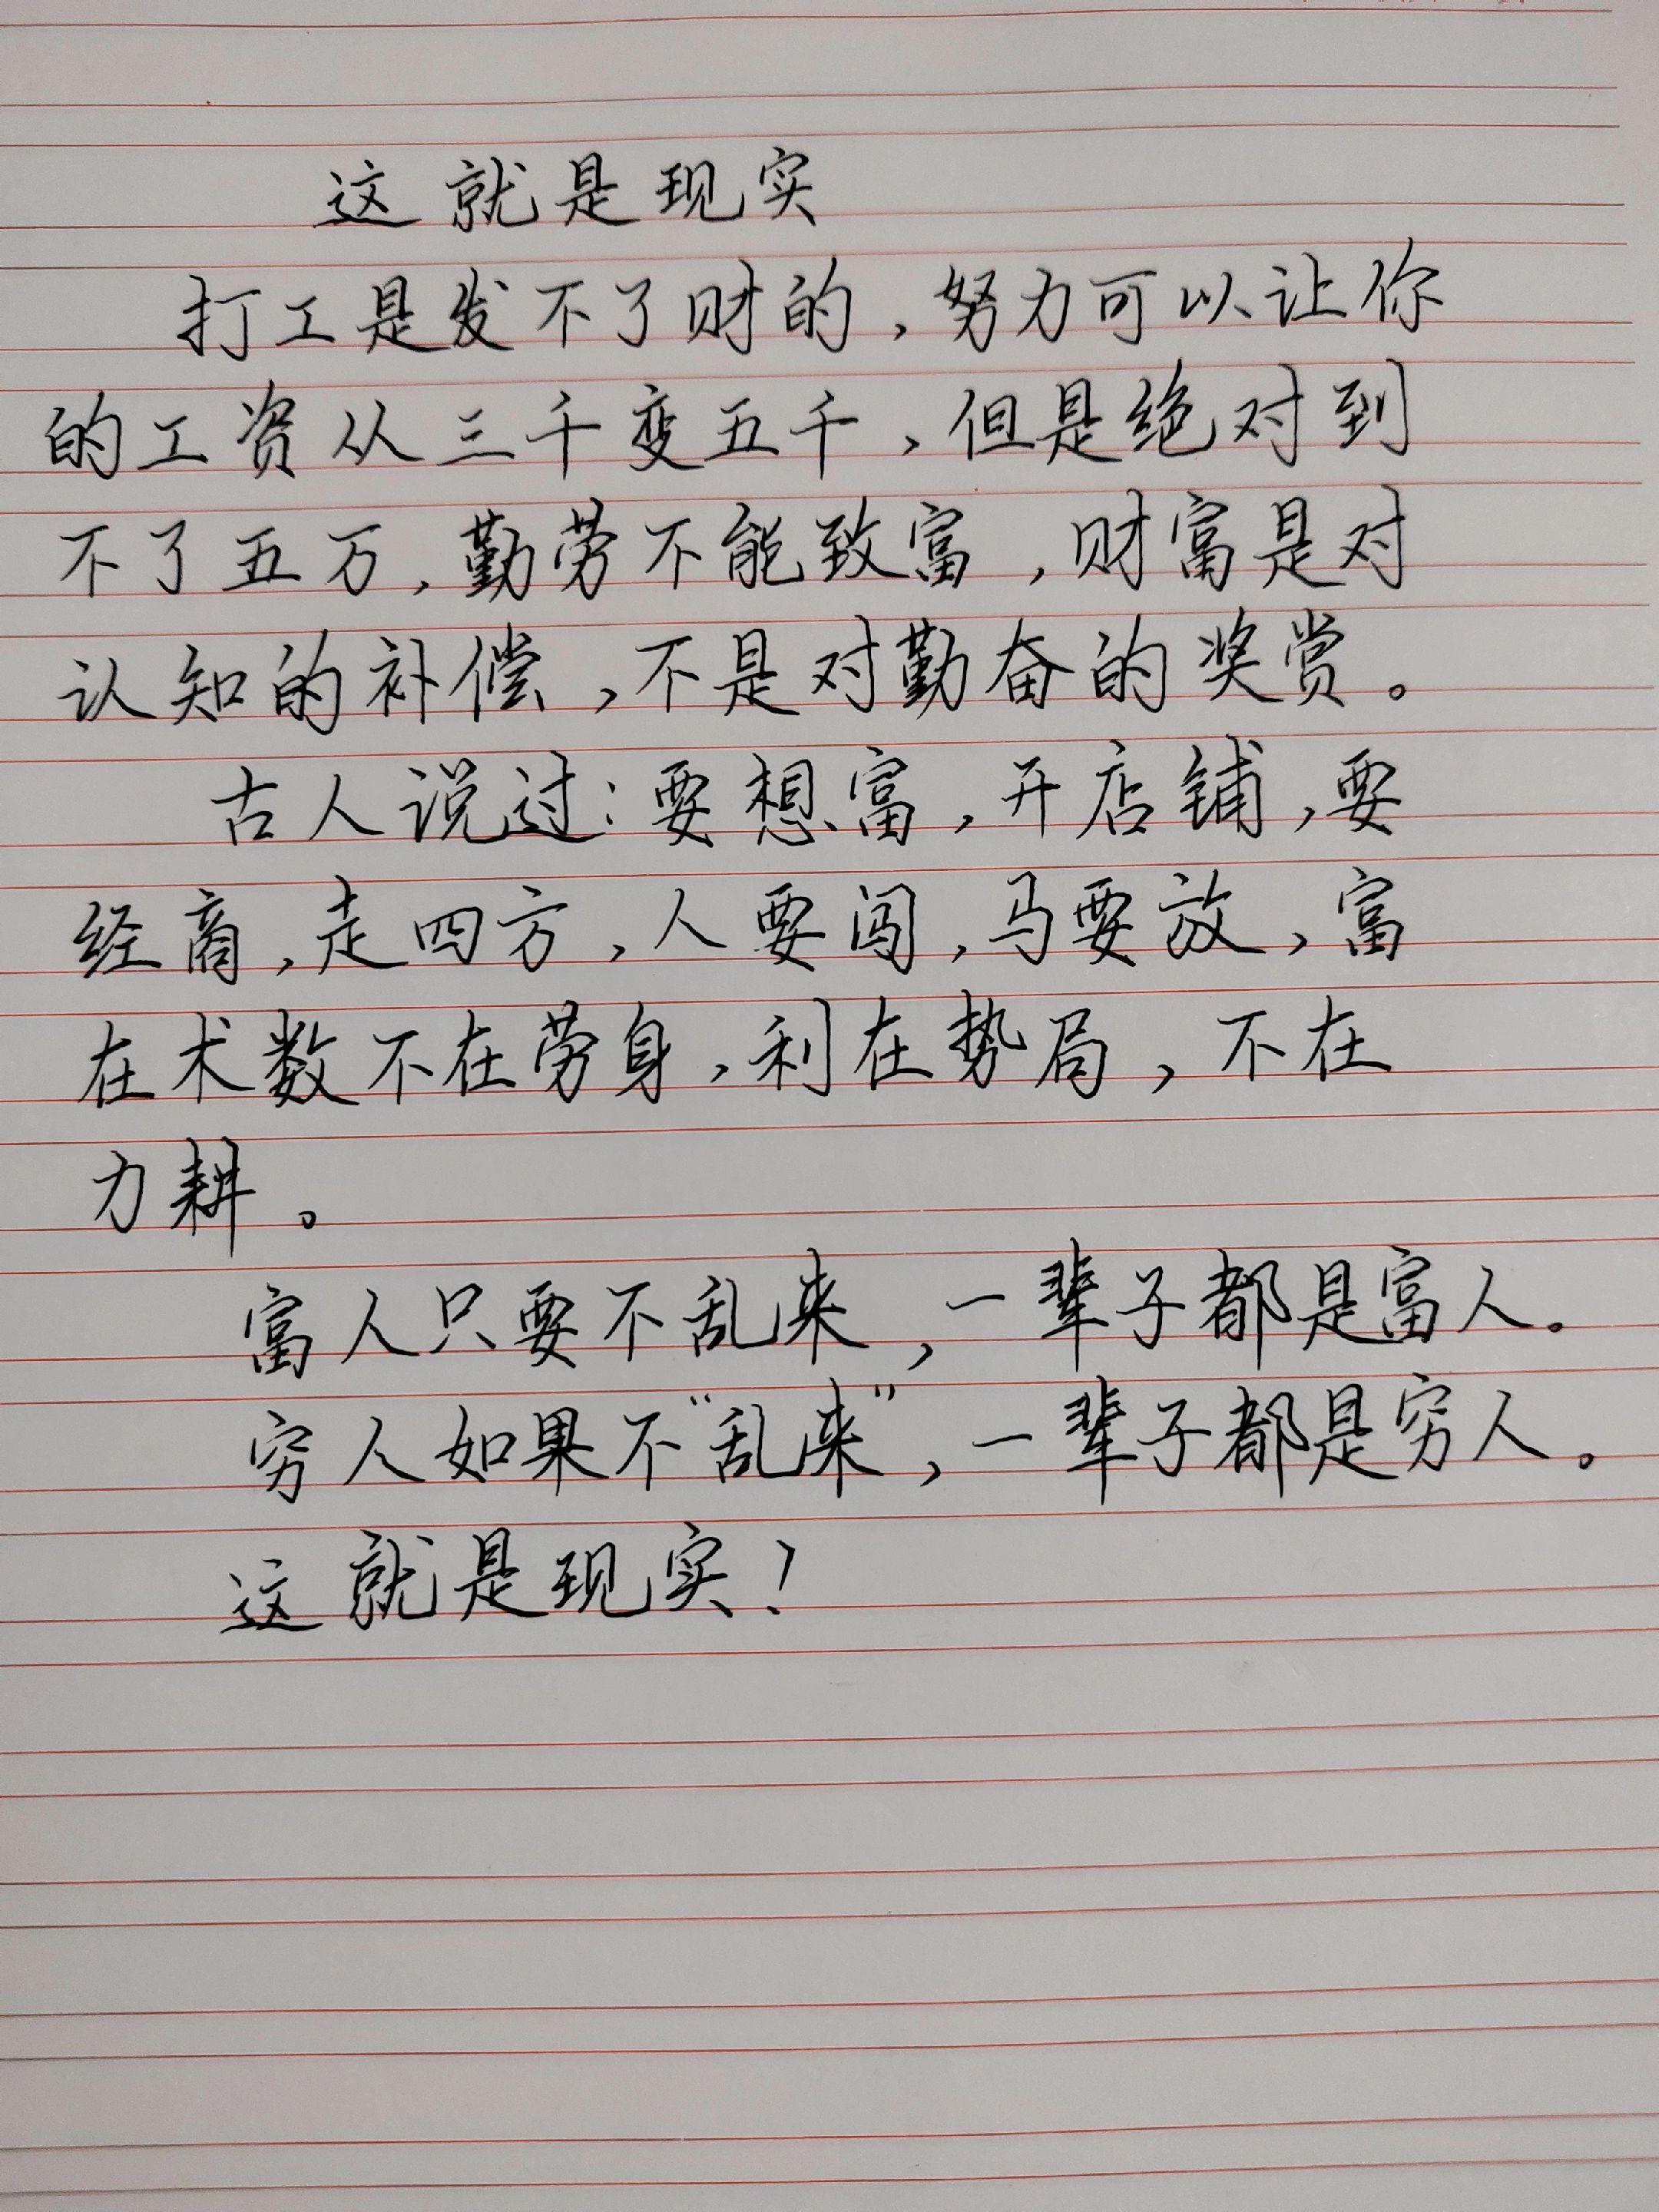 这就是现实
打工是发不了财的，努力可以让你
的工资从三千变五千，但是绝对到
不了五万，勤劳不能致富，财富是对
认知的补偿，不是对勤奋的奖赏。
古人说过：要想富，开店铺，要
经商，走四方，人要闯，马要放，富
在术数不在劳身，利在势局，不在
力耕。
富人只要不乱来，一辈子都是富人。
穷人如果不“乱来”，一辈子都是穷人。
这就是现实！